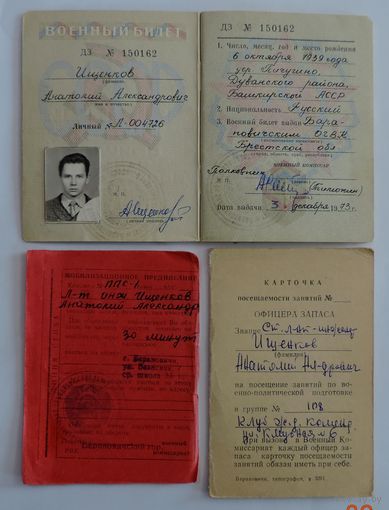 ВОЕННЫЙ БИЛЕТ
ДЗ № 150162
Ищенков
(фамилия)
Анатолий Александрович
имя и отчество
Личный № Л-004726
М. П.
ДЗ № 150162
1. Число, месяц, год и место рождения
6 октября 1939 года
Дуванского района,
Башкирской АССР
2. Национальность Русский
3. Военный билет выдан Бара-
новичским ОГВК
Брестской обл
ВОЕННЫЙ КОМИССАР
Полковник
М. П.
Дата выдачи 3 декабря 1973 г.
МОБИЛИЗАЦИОННОЕ ПРЕДПИСАНИЕ
ППС-1
Л-т инж Ищенков
Анатолий Александр
30 минут
г. Барановичи
Барановичский гор.
военный
комиссариат
КАРТОЧКА
посещаемости занятий №
ОФИЦЕРА ЗАПАСА
Звание Ст. л-нт-инженер
Ищенков
(фамилия)
Анатолий Ал-дрович
на посещение занятий по во-
енно-политической подготовке
в группе № 108
Клуб ж.д.
При вызове в Военный Ко-
миссариат каждый офицер за-
паса карточку посещаемости
занятий обязан иметь при себе.
Барановичи, типография, з.